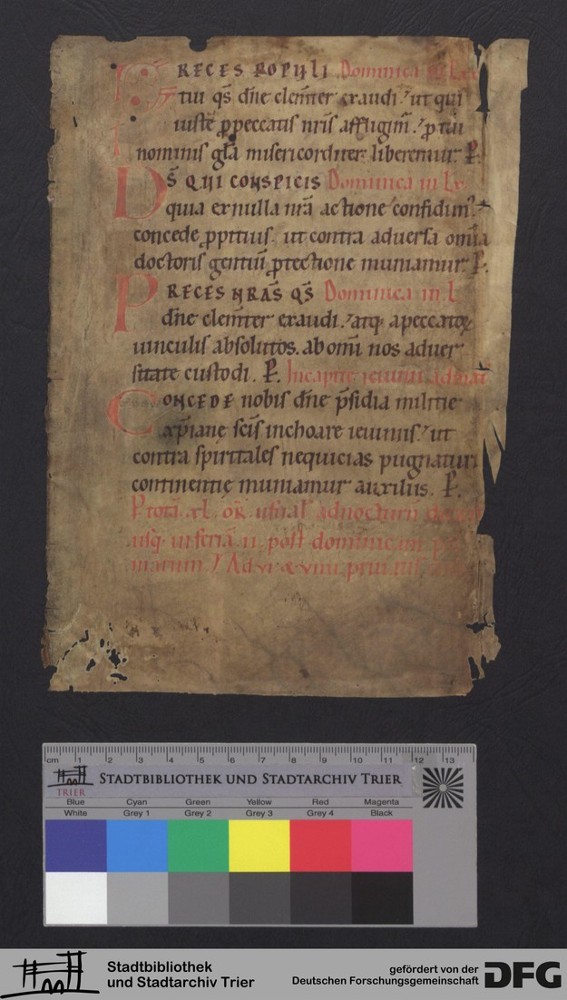 PRECES POPULI Dominica in Lxx
tui q̄s dn̄e clem̄ter exaudi. ut qui
iuste p̱peccatis nr̄is affligim̄. p̱ tui
nominis gl̄a misericorditer liberemur. P.
DS̄ QUI CONSPICIS Dominica in Lx
quia ex nulla nr̄a actione confidim̄.
concede p̱pitius. ut contra aduersa om̄ia
doctoris gentiū p̱tectione muniamur. P.
PRECES NRĀS Q̄S Dominica in L
dn̄e clem̄ter exaudi. atq; a peccatoꝝ
uinculis absolutos. ab om̄i nos aduer
sitate custodi. P. In capite ieiunii
CONCEDE nobis dn̄e p̄sidia militie
xp̄iane sc̄is inchoare ieiuniis. ut
contra spiritales nequicias pugnaturi
continentie muniamur auxiliis. P.
usq; in feria ii post dominicam
cm 1 2 3 4 5 6 7 8 9 10 11 12 13
TRIER STADTBIBLIOTHEK UND STADTARCHIV TRIER
Blue Cyan Green Yellow Red Magenta
White Grey 1 Grey 2 Grey 3 Grey 4 Black
Stadtbibliothek
und Stadtarchiv Trier
gefördert von der
Deutschen Forschungsgemeinschaft DFG